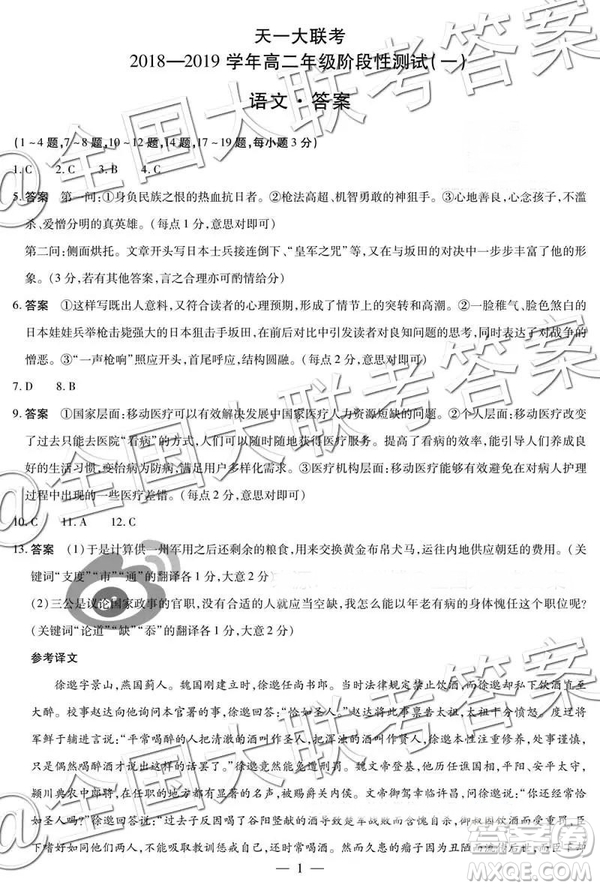 天一大联考
2018—2019 学年高二年级阶段性测试(一)
语文·答案
(1~4题,7~8题,10~12题,14题,17~19题,每小题3分)
1. C 2. C 3. C 4. B
5. 答案 第一问:①身负民族之恨的热血抗日者。②枪法高超、机智勇敢的神狙手。③心地善良,心念孩子,不滥
杀、爱憎分明的真英雄。(每点1分,意思对即可)
第二问:侧面烘托。文章开头写日本士兵接连倒下、“皇军之咒”的出现以及坂田的对决,都有力烘托了这一形
象。(3分,若有其他答案言之成理可酌情给分)
6. 答案 ①这样写既出人意料,又符合读者的心理预期,形成了情节上的突转和高潮。②一脸稚气、脸色煞白的
日本娃娃兵举枪击毙强大的日本狙击手坂田,这样的描写引起人们对战争问题的思考,以及对残酷战争的
憎恶。③“一声枪响”照应开头,首尾呼应,结构圆融。(每点2分,意思对即可)
7. D 8. B
9. 答案 ①国家层面:移动医疗可以有效缓解发展中国家医疗人力资源短缺的问题。②个人层面:移动医疗改变
了过去只能去医院“看病”的方式,人们可以随时随地看病并获得服务。提高了看病的效率,能引导人们养成更
好的生活习惯,变治病为防病,满足用户多样化需求。③医院层面:移动医疗能够避免在对病人护理
过程中出现的一些医疗差错。(每点2分,意思对即可)
10. C 11. A 12. C
13. 答案 (1)于是计算供一州军用之后还剩余的粮食,用来交换黄金布帛犬马,运送供应朝廷的费用。(关
键词“支度”“市”“通”的翻译各1分,大意2分)
(2)三公是议论国家政事的官职,没有合适的人就应当空缺,我怎么能以年老多病的身体愧受这个职位呢?
(关键词“论道”“缺”“忝”的翻译各1分,大意2分)
参考译文
徐邈字景山,燕国蓟人。魏国刚建立时,徐邈任尚书郎。当时法令规定禁止喝酒,而徐邈却私下饮酒直至
大醉。校事赵达向他询问本官署的事情,徐邈回答:“如圣人。”赵达把此事报告太祖,太祖十分恼怒。度辽将
军鲜于辅进言说:“平常喝醉的人把清澈的酒叫作圣人,把浑浊的酒叫作贤人,徐邈本性谨慎有节操,只是偶然
喝醉才说出这样的话罢了。”徐邈最终竟然能免遭刑罚。魏文帝登基后,徐邈历任谯国相,平阳、安平太守,
颍川典农中郎将,所在之处都有好的声誉。文帝驾临许昌,问徐邈说:
“以前子反因为喝了谷阳竖献的酒导致楚军战败而含愧自杀,御叔因饮酒而
1
@全国大联考答案